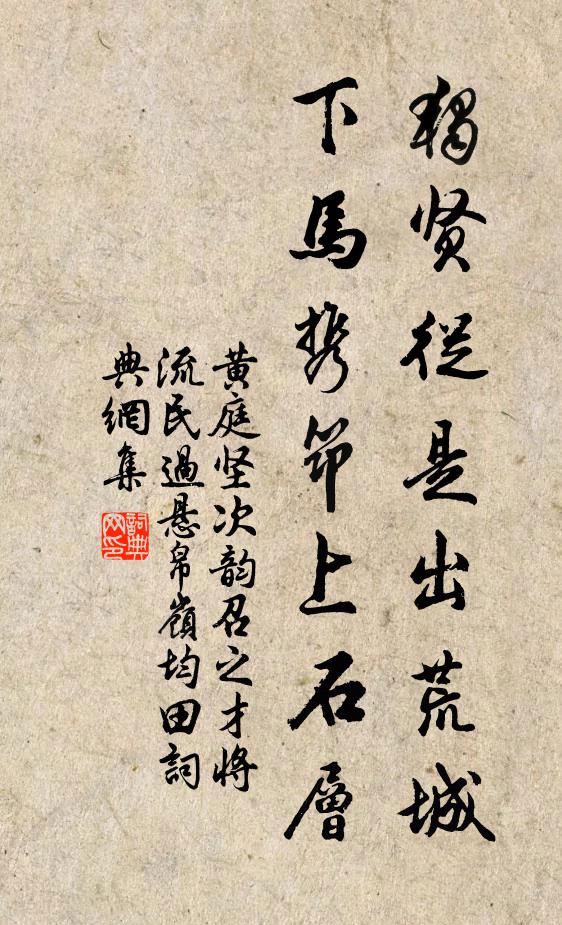 獨贤從是出荒城
下馬携笻上石層
黄庭坚次韵召之才將
流民過悬帛嶺均田詞
典網集
詞典网印